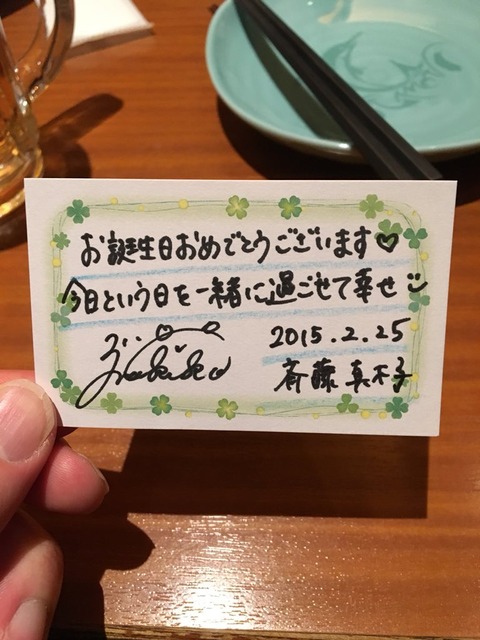 お誕生日おめでとうございます♡
今日という日を一緒に過ごせて幸せ
2015.2.25
斉藤真木子